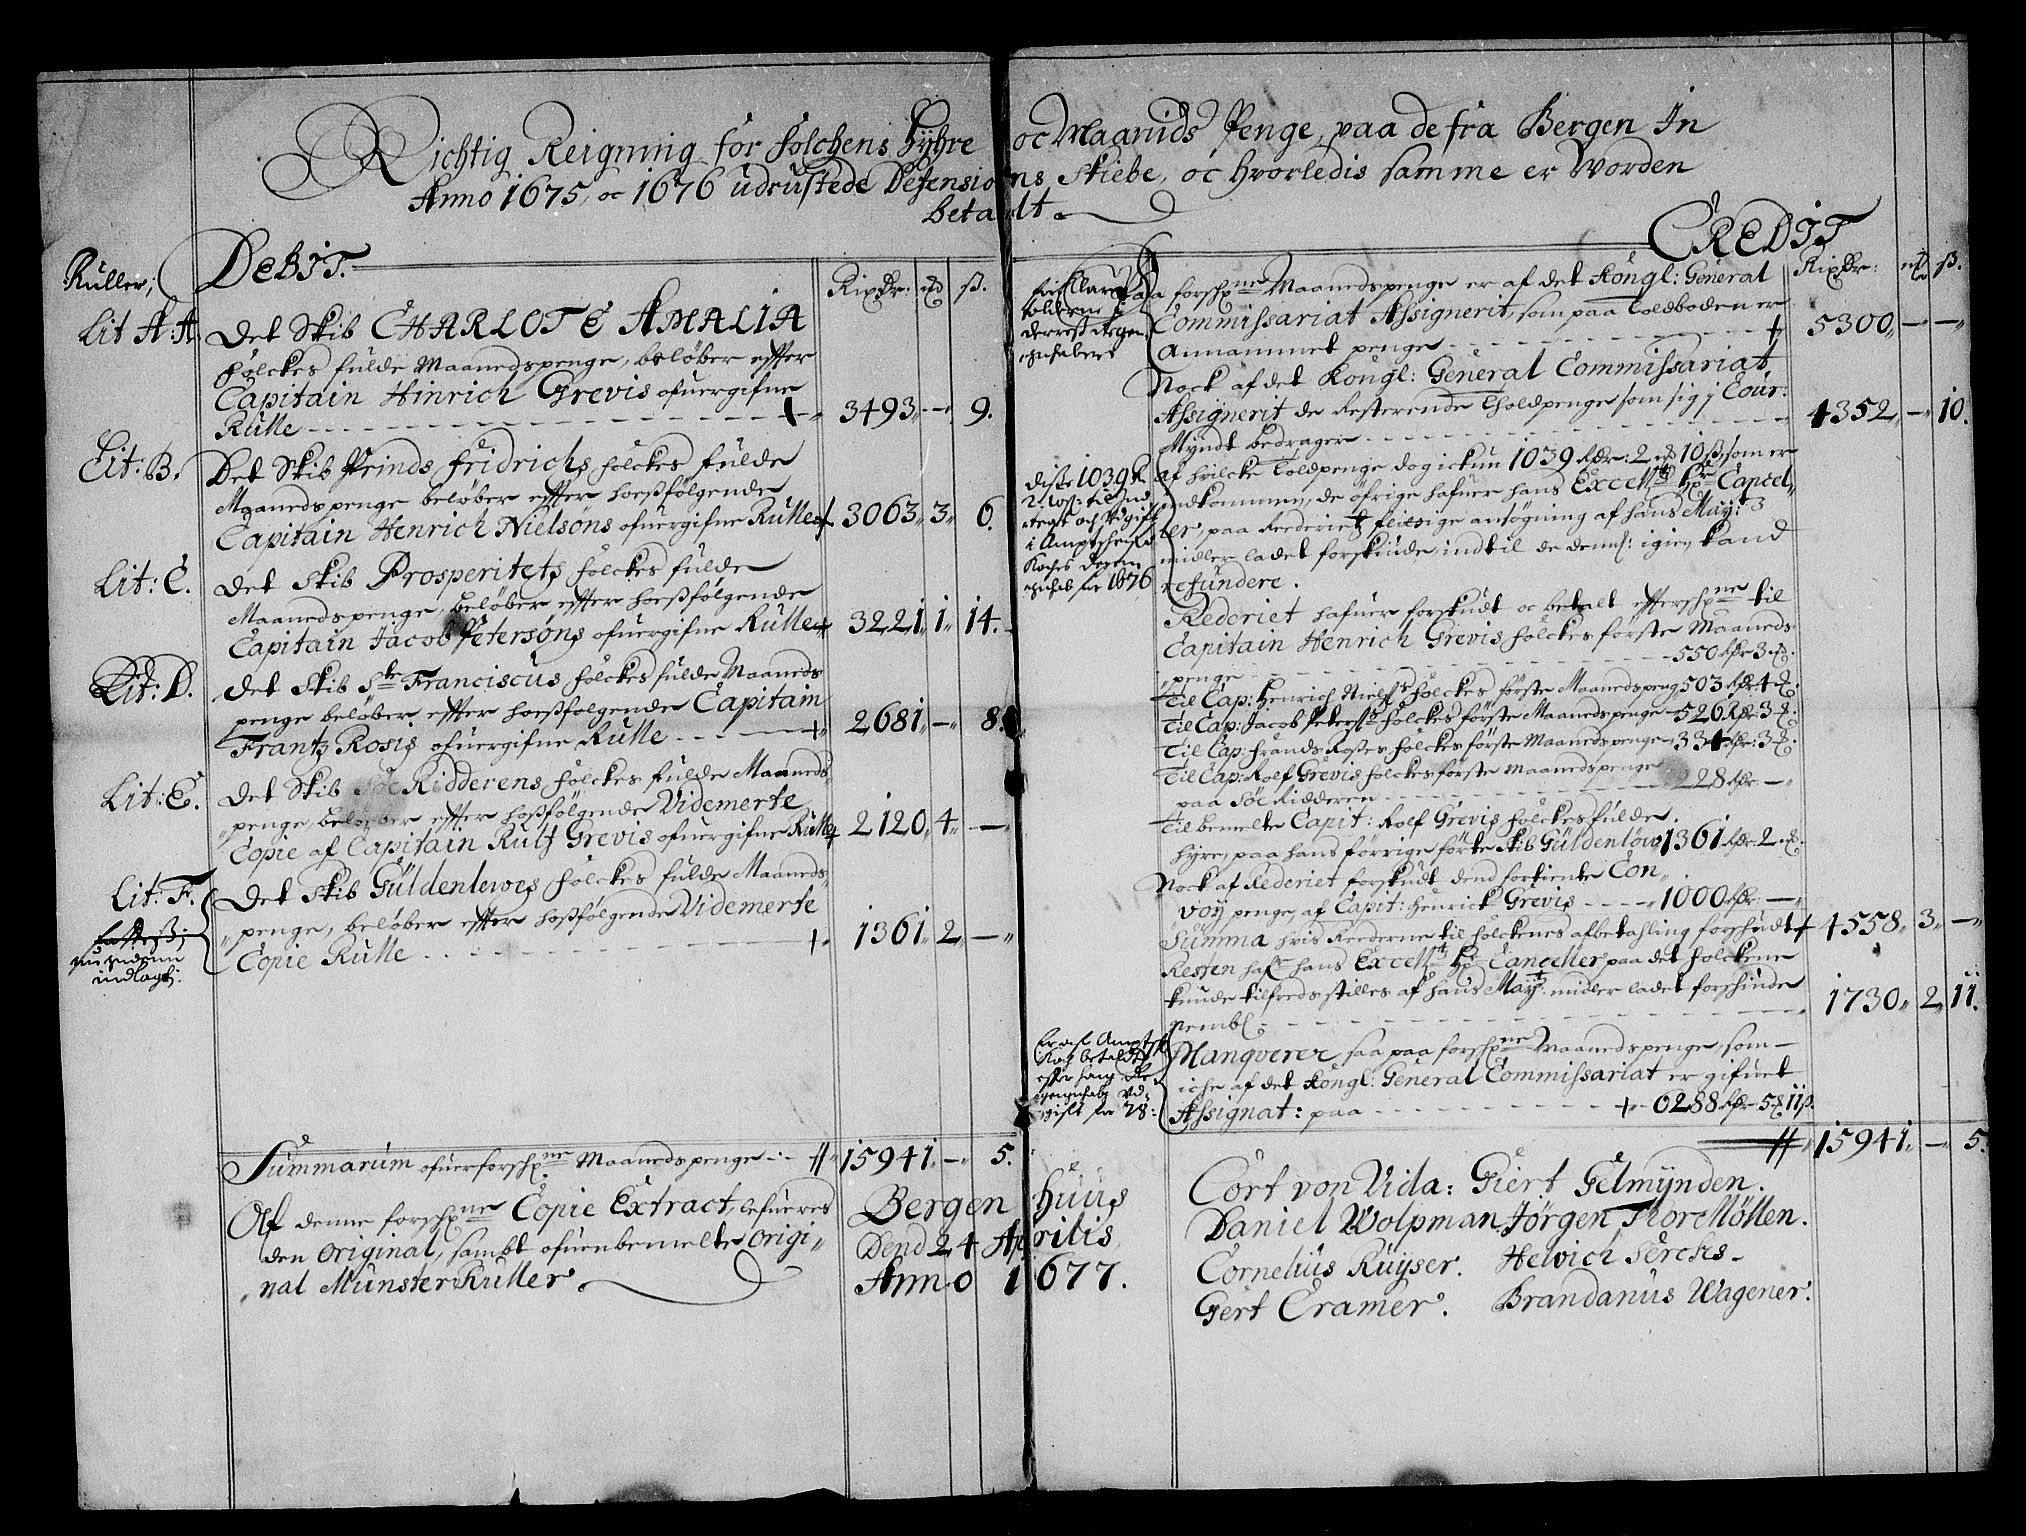 Richtig Reigning for folchens Hyhre oc Maanids Penge, paa de fra Bergen In
Anno 1675, oc 1676 udrustede Defensions Skiebe, oc hvorledis samme er Worden
betaldt.
Ruller;
DEBIT.
RixDr:
ß.
Lit A: A.
Det Skib CHARLOTE AMALIA
folckes fulde Maanedspenge, beløber effter
Capitain Hinrich Grevis ofuergifne
Rulle 3493 — 9.
Lit: B.
Det Skib Prinds Fridrichs folckes fulde
Maanedspenge beløber effter hoeßfölgende
Capitain Henrich Nielsøns ofuergifne Rulle 3063 3 6.
Lit: C.
Det Skib Prosperitets folckes fulde
Maanedspenge, beløber effter hoeßfølgende
Capitain Jacob Petersøns ofuergifne Rulle 3221 1 14.
Lit: D.
Det Skib Ste Franciscus folckes fulde Maaneds
penge beløber effter hoeßfølgende Capitain
Frantz Rosis ofuergifne Rulle 2681 — 8.
Lit: E.
Det Skib Söe Ridderens folckes fulde Maaneds
penge, beløber effter hoßfölgende Videmerte
Copie af Capitain Rulf Grevis ofuergifne Rulle 2120 4 —
Lit: F.
Det Skib Güldenlewes folckes fulde Maaneds
penge, beløber effter hoßfølgende Videmerte
Copie Rulle 1361 2 —
indlagt:
Summarum ofuerforschne Maanedspenge 15941 — 5.
Af denne forschne Copie Extract, lefueres
den Original, sambt ofuenbemelte Origi
nal Munster Ruller.
Bergen Huus
Dend 24 Aprilis
Anno 1677.
CREDIT
RixDr: ß.
Paa forschne Maanedspenge er af det Kongl: General
Commissariat Assignerit, som paa Toldboden er
Annammet penge 5300 — —
Nock af det Kongl: General Commissariat
Assignerit de Resterende Tholdpenge som sig i Cour:
Myndt bedrager 4352 — 10.
diße 1039 R
Af hvilcke Toldpenge dog ickun 1039 Rdr: 2 10 ß, som er
indkommen, de öfrige hafuer hans Excell: Hr: Cancel
ler, paa Rederietz flitige ansøgning af hans May:
midler ladet forskiude, indtil de dennl: igien kand
refundere.
for 1676
Rederiet hafuer forskudt oc betalt effterschne til
Capitain Henrich Grevis folckes første Maaneds
penge 550 Rdr 3
Til Cap: Henrich Nielss folckes første Maanedspeng 503 Rdr 4
Til Cap: Jacob Peterss folckes første Maanedspenge 526 Rdr: 3
Til Cap: Frands Roßes folckes første Maanedspenge 334 Rdr: 3
Til Cap: Rolf Grevis folckes første Maanedspenge
paa Söe Ridderen 228 Rdr —
Til bemelte Capit: Rolf Grevis folckes fulde
hyre, paa hans forrige førte Skib Güldenlöw 1361 Rdr: 2
Nock af Rederiet forskudt dend fortiente Con
voy penge, af Capit: Henrick Grevis 1000 Rdr: —
Summa hvis Rederne til folckenes afbetahling forschudt 4558 3 —
Resten hafr hans Excell: Hr: Canceller paa det folckene
kunde tilfreds stilles af hans May: midler ladet forschiude
1730 2 11.
Er af Amptsk
Koch betaldt
effter hans Re
genschabs Ud
gift for 78:
Manqverer, saa paa forschne Maanedspenge, som
iche af det Kongl: General Commissariat er gifuet
Assignat: paa 0288 Rdr 5 11 ß.
15941 — 5.
Cort von Vida: Giert Gelmÿnden.
Daniel Wolpman Jörgen Thor Möllen.
Cornelius Ruyser. Helvich Serchs
Gert Cramer. Brandanus Wagener.